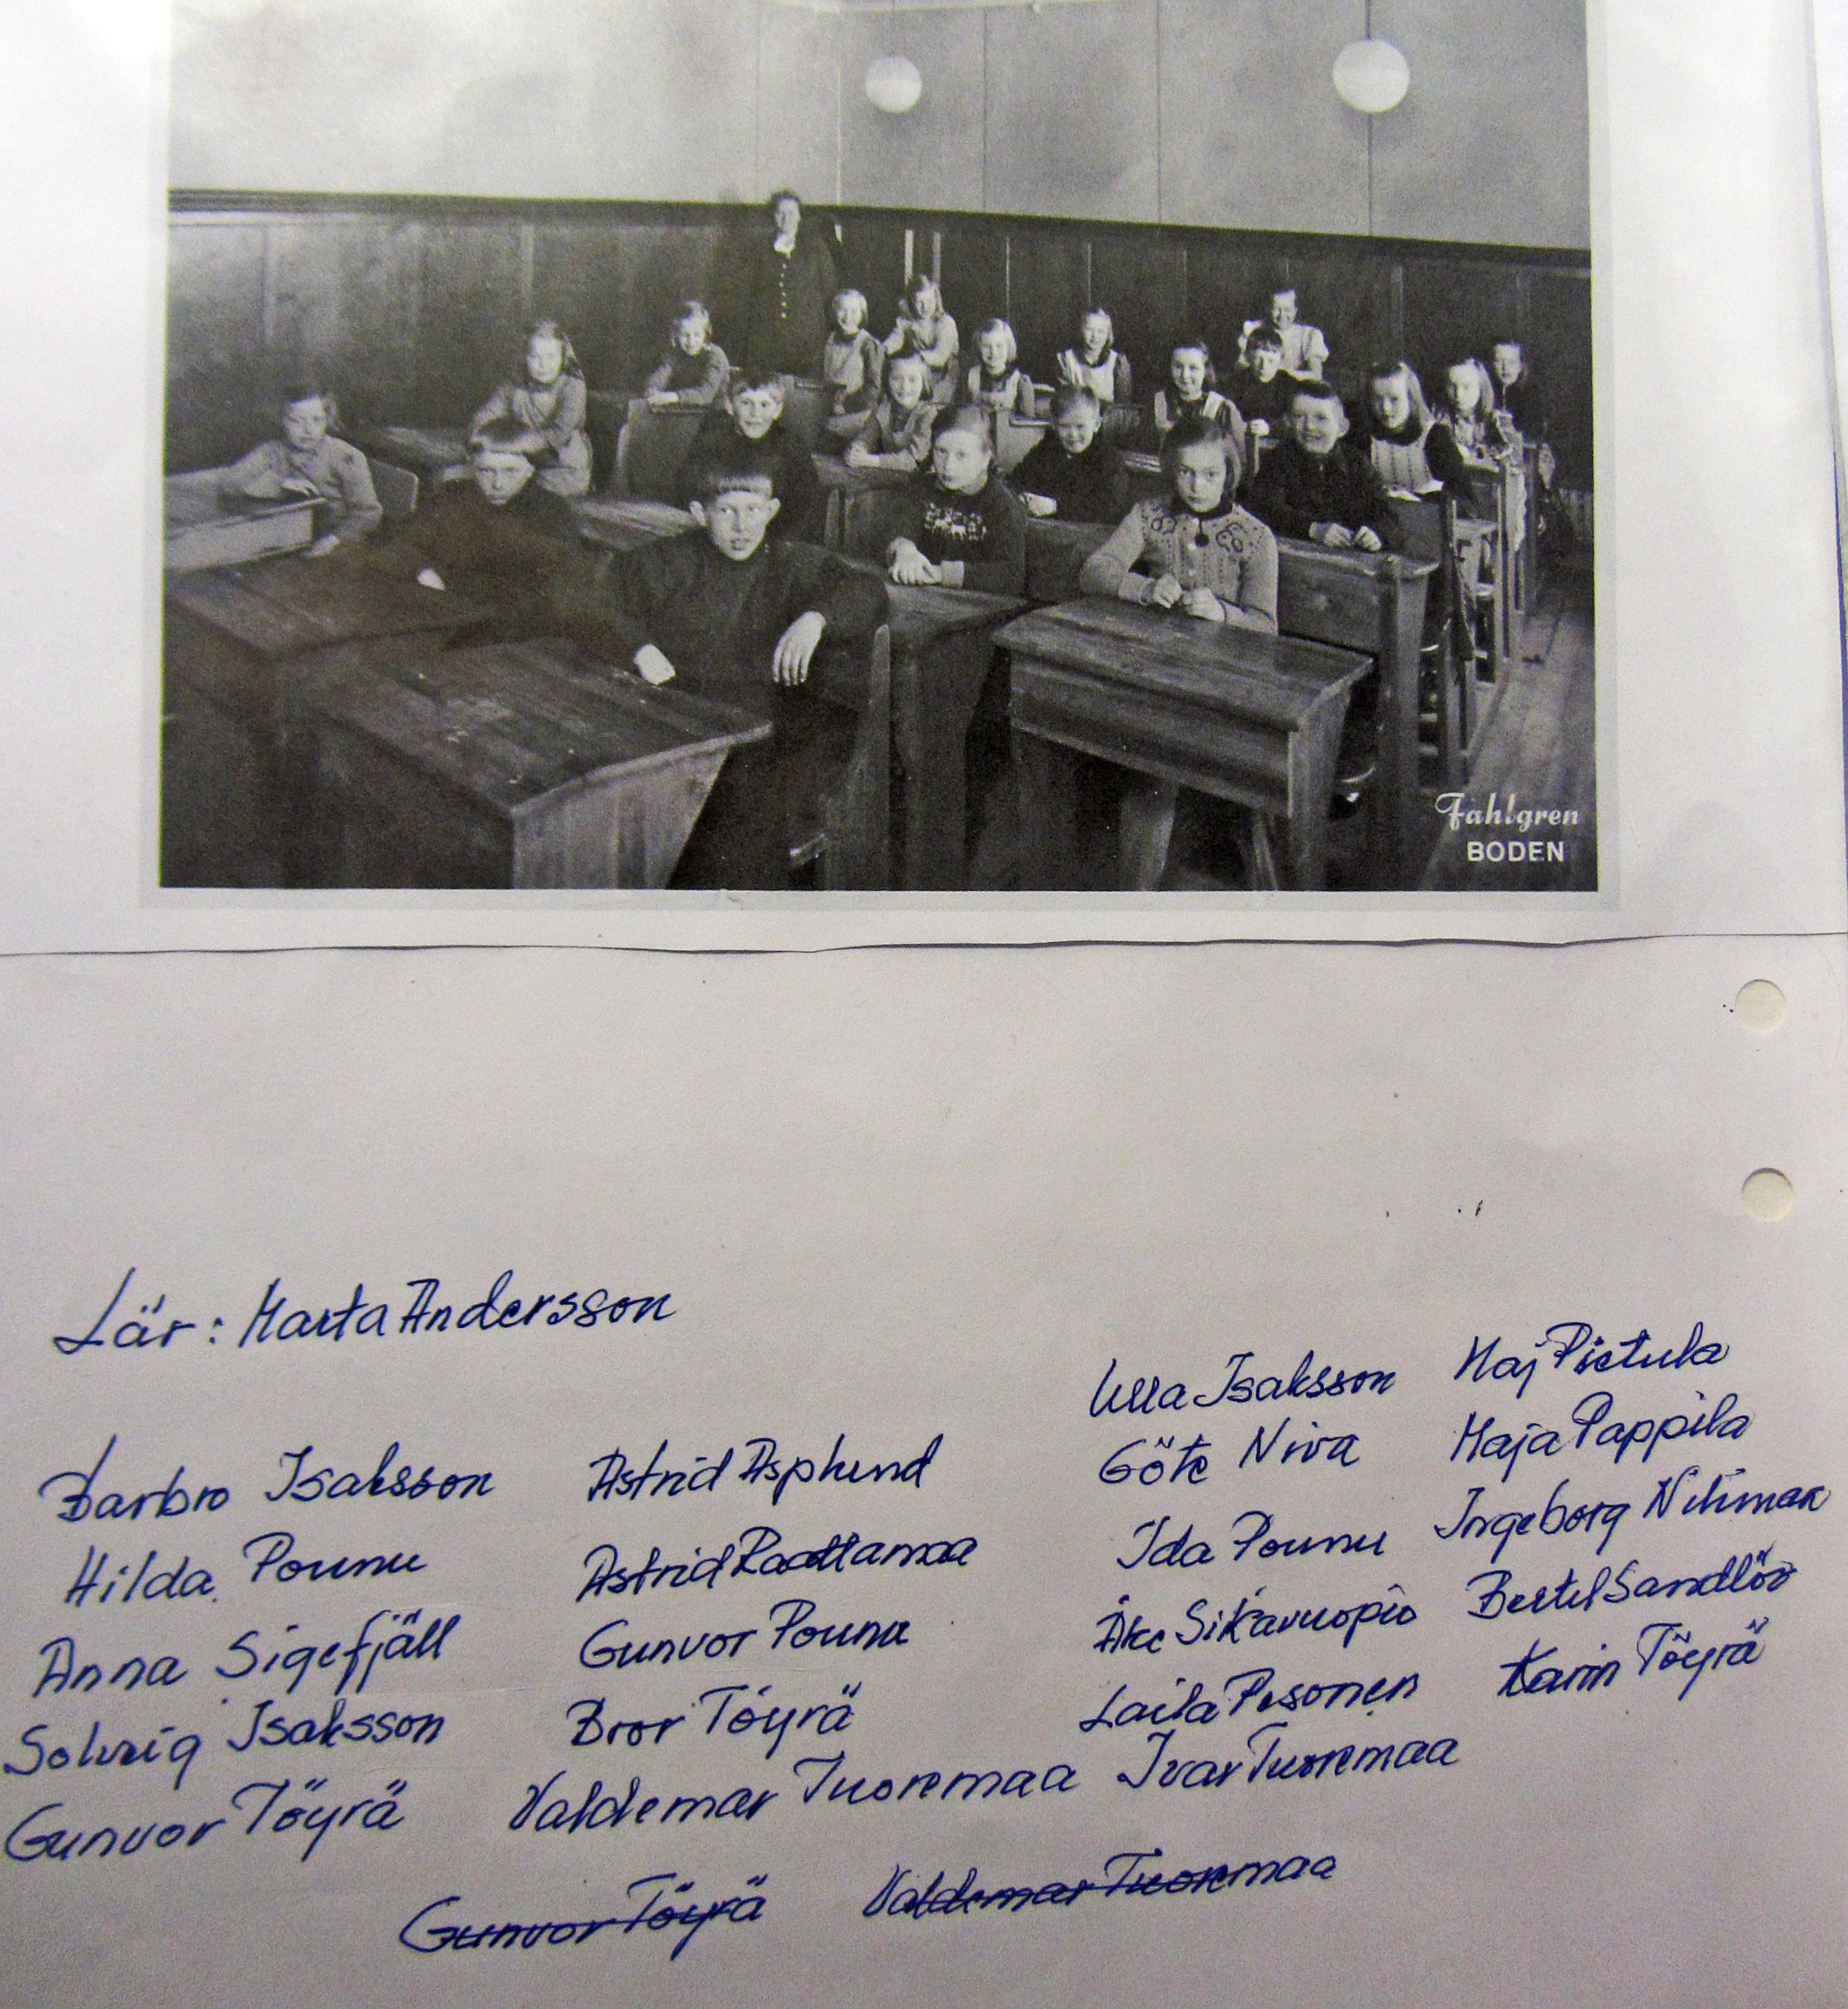 Fahlgren
BODEN
Lär: Marta Andersson
Ulla Isaksson Maj Pietula
Barbro Isaksson Astrid Asplund Göte Niva Maja Pappila
Hilda Pounu Astrid Raattamaa Ida Pounu Ingeborg Niilimaa
Anna Sigefjäll Gunvor Pounu Åke Sikavuopio Bertel Sandlöv
Solveig Isaksson Bror Töyrä Laila Pesonen Karin Töyrä
Gunvor Töyrä Valdemar Tuoremaa Ivar Tuoremaa
Gunvor Töyrä Valdemar Tuoremaa